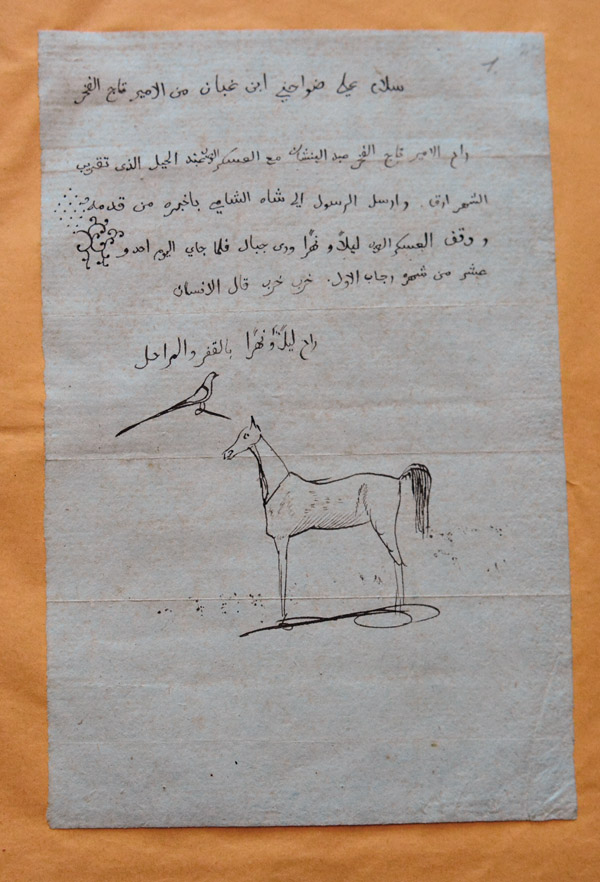 سلام على ضواحي ابن غبان من الامير تاج الفخر
راح الامير تاج الفخر عبد مع العسكر عند الجبل الذى تقريب
الشهر ازرق. وارسل الرسول الى شاه الشامي باخبره من قدمه
و وقف العسكر ليلاً و نهرًا ورى جبال فلما جاى اليوم احد و
عشر من شهر رجاب الاول. خرب خرب قال الانسان
راح ليلاً و نهرًا بالقفر و المراحل